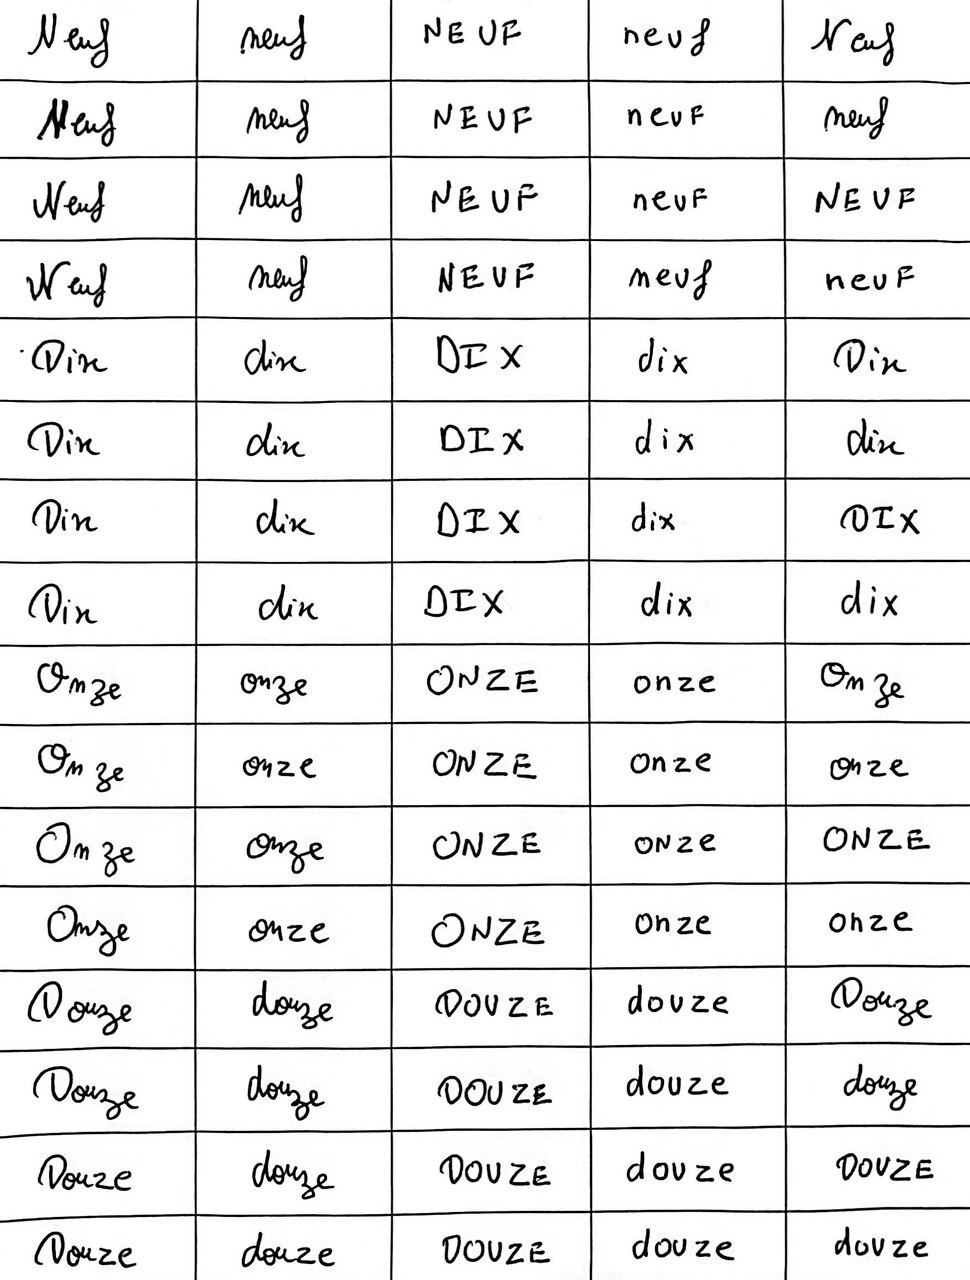 Neuf neuf NEUF neuf Neuf
Neuf neuf NEUF neuF neuf
Neuf neuf NEUF neuF NEUF
Neuf neuf NEUF neuf neuF
Dix dix DIX dix Dix
Dix dix DIX dix dix
Dix dix DIX dix DIX
Dix dix DIX dix dix
Onze onze ONZE onze Onze
Onze onze ONZE onze onze
Onze onze ONZE oNze ONZE
Onze onze ONZE onze onze
Douze douze DOUZE douze Douze
Douze douze DOUZE douze douze
Douze douze DOUZE douze DOUZE
Douze douze DOUZE douze douze